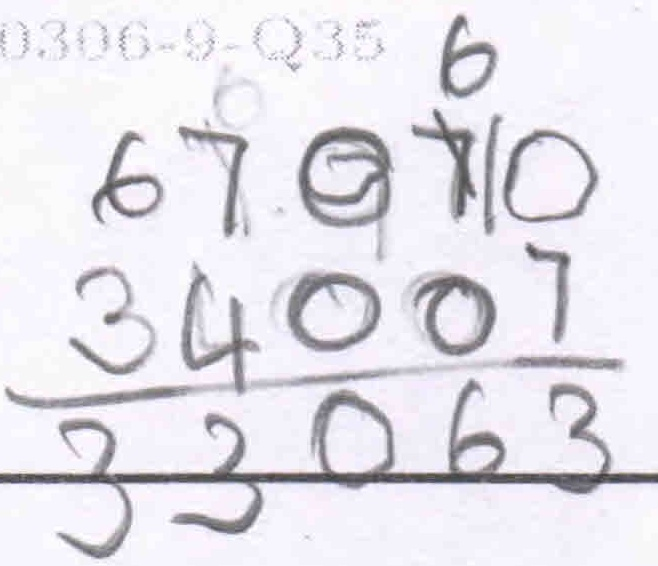 0306-9-Q35
6
6 7 0 7 10
3 4 0 0 7
3 3 0 6 3